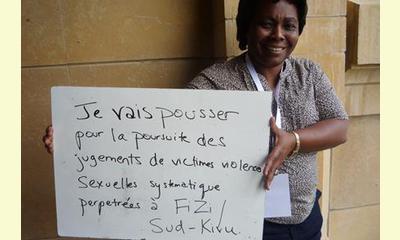 Je vais pousser
pour la poursuite des
jugements de victimes violence
Sexuelles systmatique
perpetrées à FiZi/
Sud-Kivu